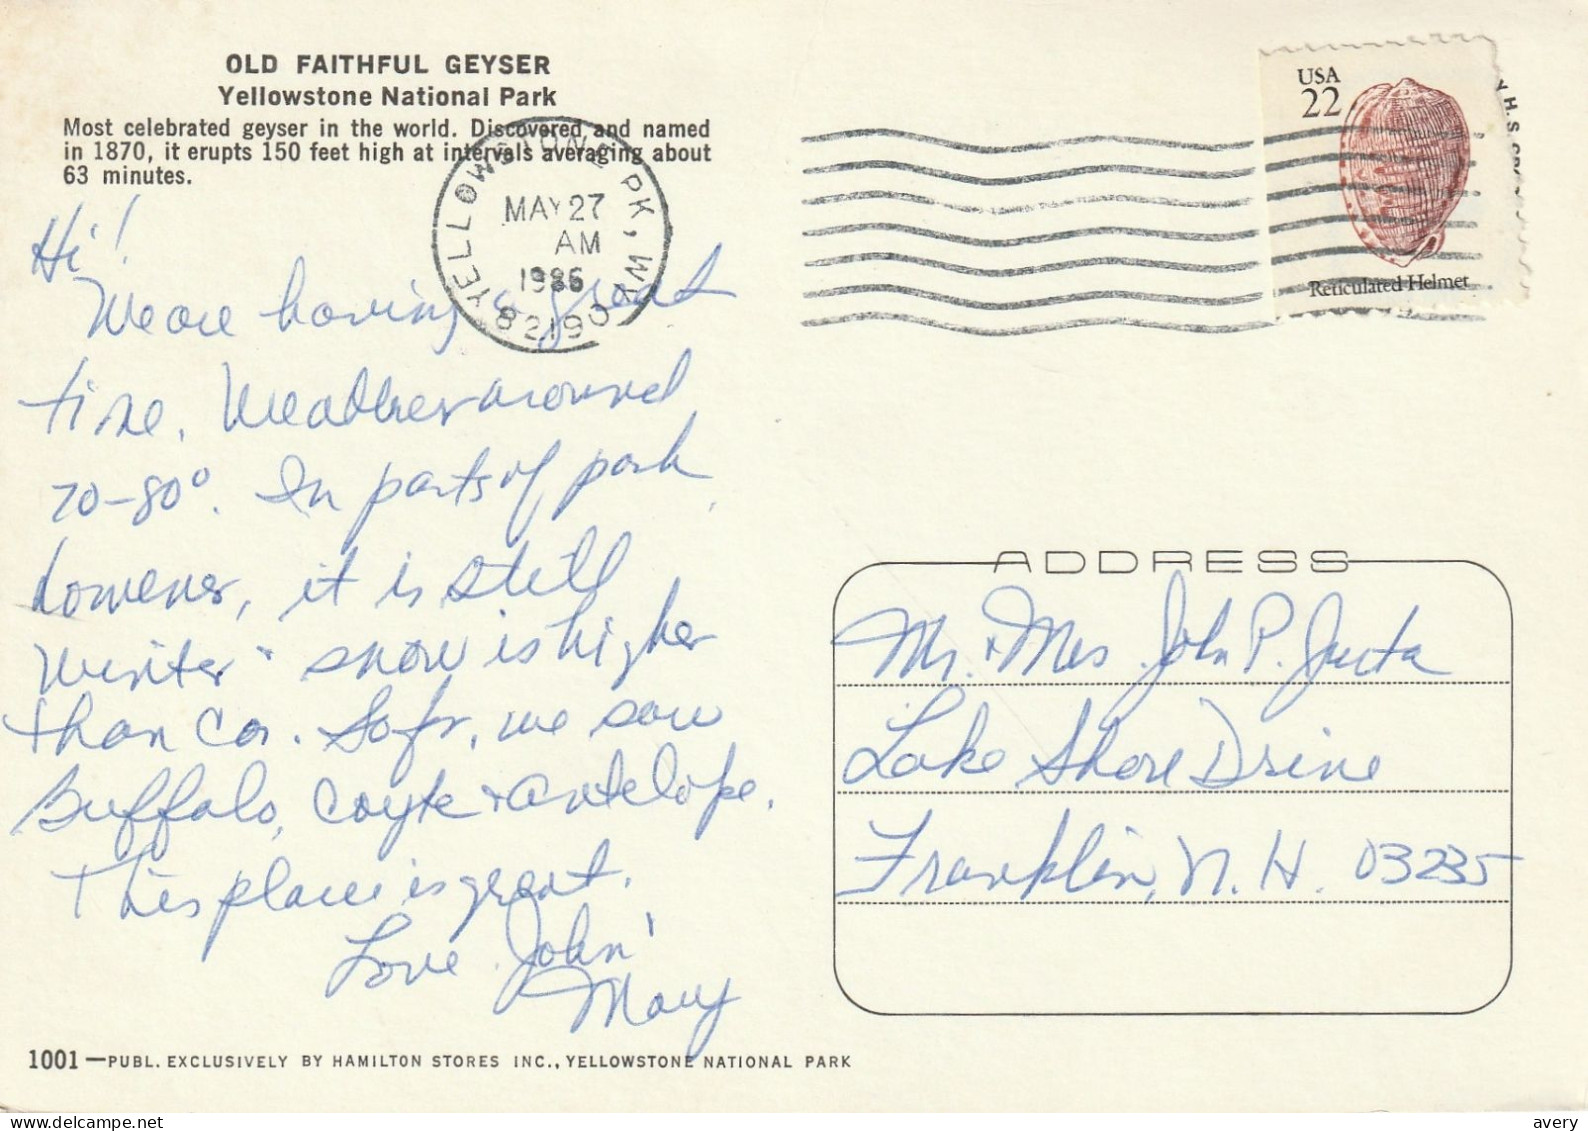 OLD FAITHFUL GEYSER
Yellowstone National Park
Most celebrated geyser in the world. Discovered and named
in 1870, it erupts 150 feet high at intervals averaging about
63 minutes.
YELLOWSTONE PK, WY
MAY 27
AM
1986
82190
USA
22
Reticulated Helmet
Hi!
We are having a great
time. Weather around
70-80°. In parts of park
however, it is still
winter + snow is higher
than car. So far, we saw
Buffalo, Coyte + antelope.
This place is great.
Love John &
Mary
ADDRESS
Mr. + Mrs. John P. Justa
Lake Shore Drive
Franklin, N. H. 03235
1001—PUBL. EXCLUSIVELY BY HAMILTON STORES INC., YELLOWSTONE NATIONAL PARK
avery